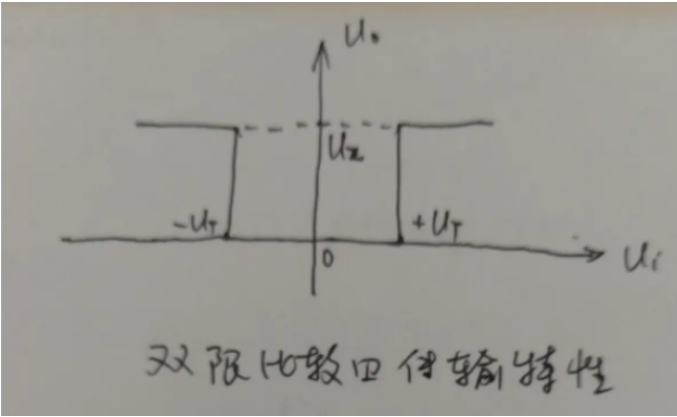 U₀
U_z
-U_T
+U_T
0
U_i
双限比较回传输特性